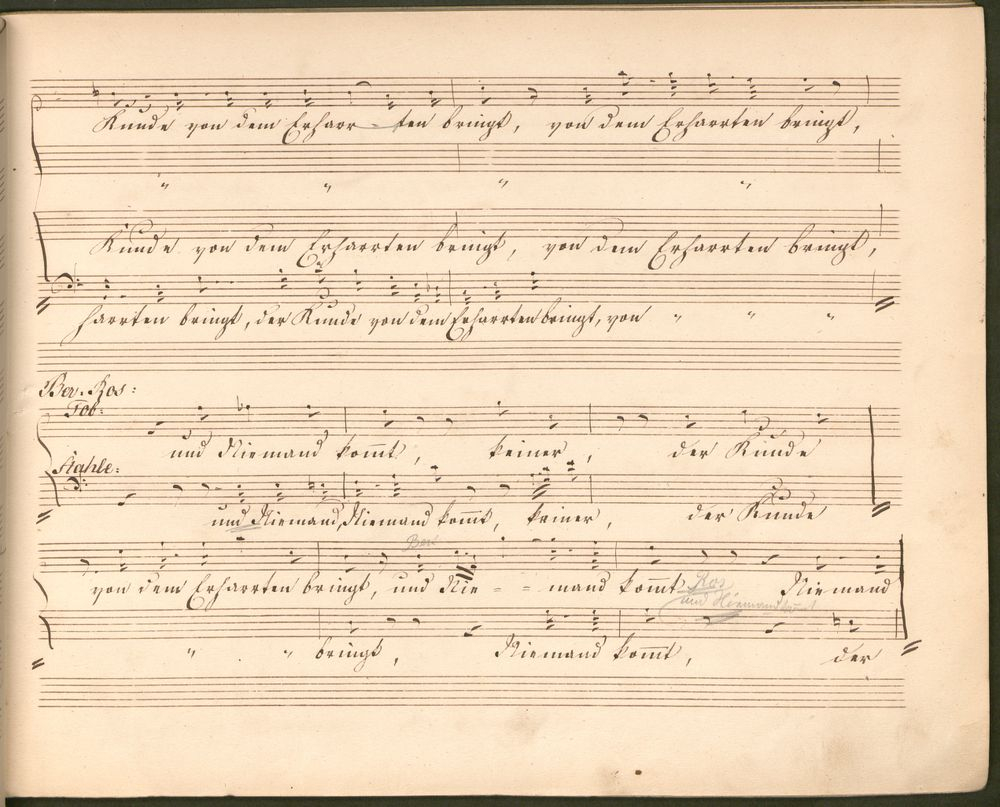 Kunde von dem Erharr - ten bringt, von dem Erharrten bringt,
" " " "
Kunde von dem Erharrten bringt, von dem Erharrten bringt,
harrten bringt, der Kunde von dem Erharrten bringt, von " " "
Ber. Ros:
Tob:
und Niemand kom̄t, keiner, der Kunde
Stahle:
und Niemand, Niemand kom̄t, keiner, der Kunde
Ber
von dem Erharrten bringt, und Nie - - mand kom̄t Ros Niemand
und Niemand kom̄t
" " bringt, Niemand kom̄t, der